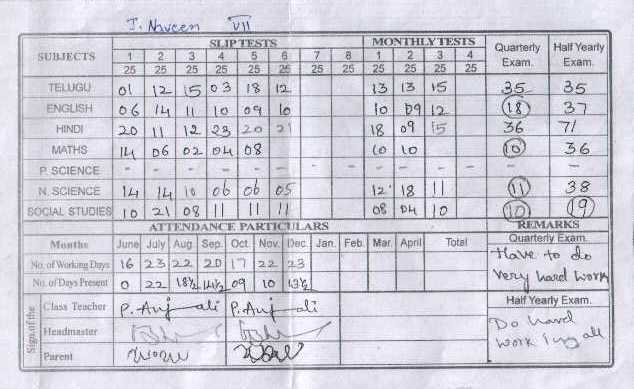 J. Naveen VII
SUBJECTS SLIP TESTS MONTHLY TESTS Quarterly Exam. Half Yearly Exam.
1 2 3 4 5 6 7 8 1 2 3 4
25 25 25 25 25 25 25 25 25 25 25 25
TELUGU 01 12 15 03 18 12 13 13 15 35 35
ENGLISH 06 14 11 10 09 10 10 09 12 18 37
HINDI 20 11 12 23 20 21 18 09 15 36 71
MATHS 14 06 02 04 08 10 10 10 36
P. SCIENCE - - - - - - - - - - - - - -
N. SCIENCE 14 14 10 06 06 05 12 18 11 11 38
SOCIAL STUDIES 10 21 08 11 11 11 08 04 10 10 19
ATTENDANCE PARTICULARS REMARKS
Months June July Aug. Sep. Oct. Nov. Dec. Jan. Feb. Mar. April Total Quarterly Exam.
No. of Working Days 16 23 22 20 17 22 23 Have to do
No. of Days Present 0 22 18½ 14½ 09 10 13½ very hard work
Sign. of the Class Teacher P. Anjali P. Anjali Half Yearly Exam.
Headmaster Do hard
Parent work in all